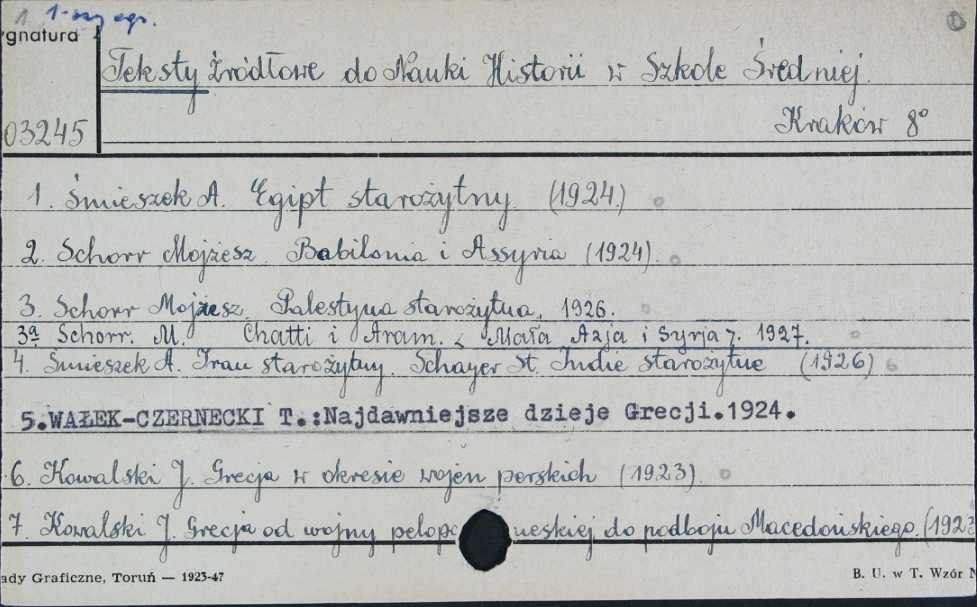 1 1-szy egz.
gnatura
Teksty Źródłowe do Nauki Historii w Szkole Średniej.
03245
Kraków 8°
1. Śmieszek A. Egipt starożytny. (1924)
2. Schorr Mojżesz. Babilonia i Assyria (1924).
3. Schorr Mojżesz. Palestyna starożytna. 1926.
3a Schorr. M. Chatti i Aram. < Mała Azja i Syrja >. 1927.
4. Śmieszek A. Iran starożytny. Schayer St. Indie starożytne (1926)
5.WAŁEK-CZERNECKI T.:Najdawniejsze dzieje Grecji.1924.
6. Kowalski J. Grecja w okresie wojen perskich (1923).
7. Kowalski J. Grecja od wojny pelop neskiej do podboju Macedońskiego. (1923
ady Graficzne, Toruń — 1923-47
B. U. w T. Wzór N